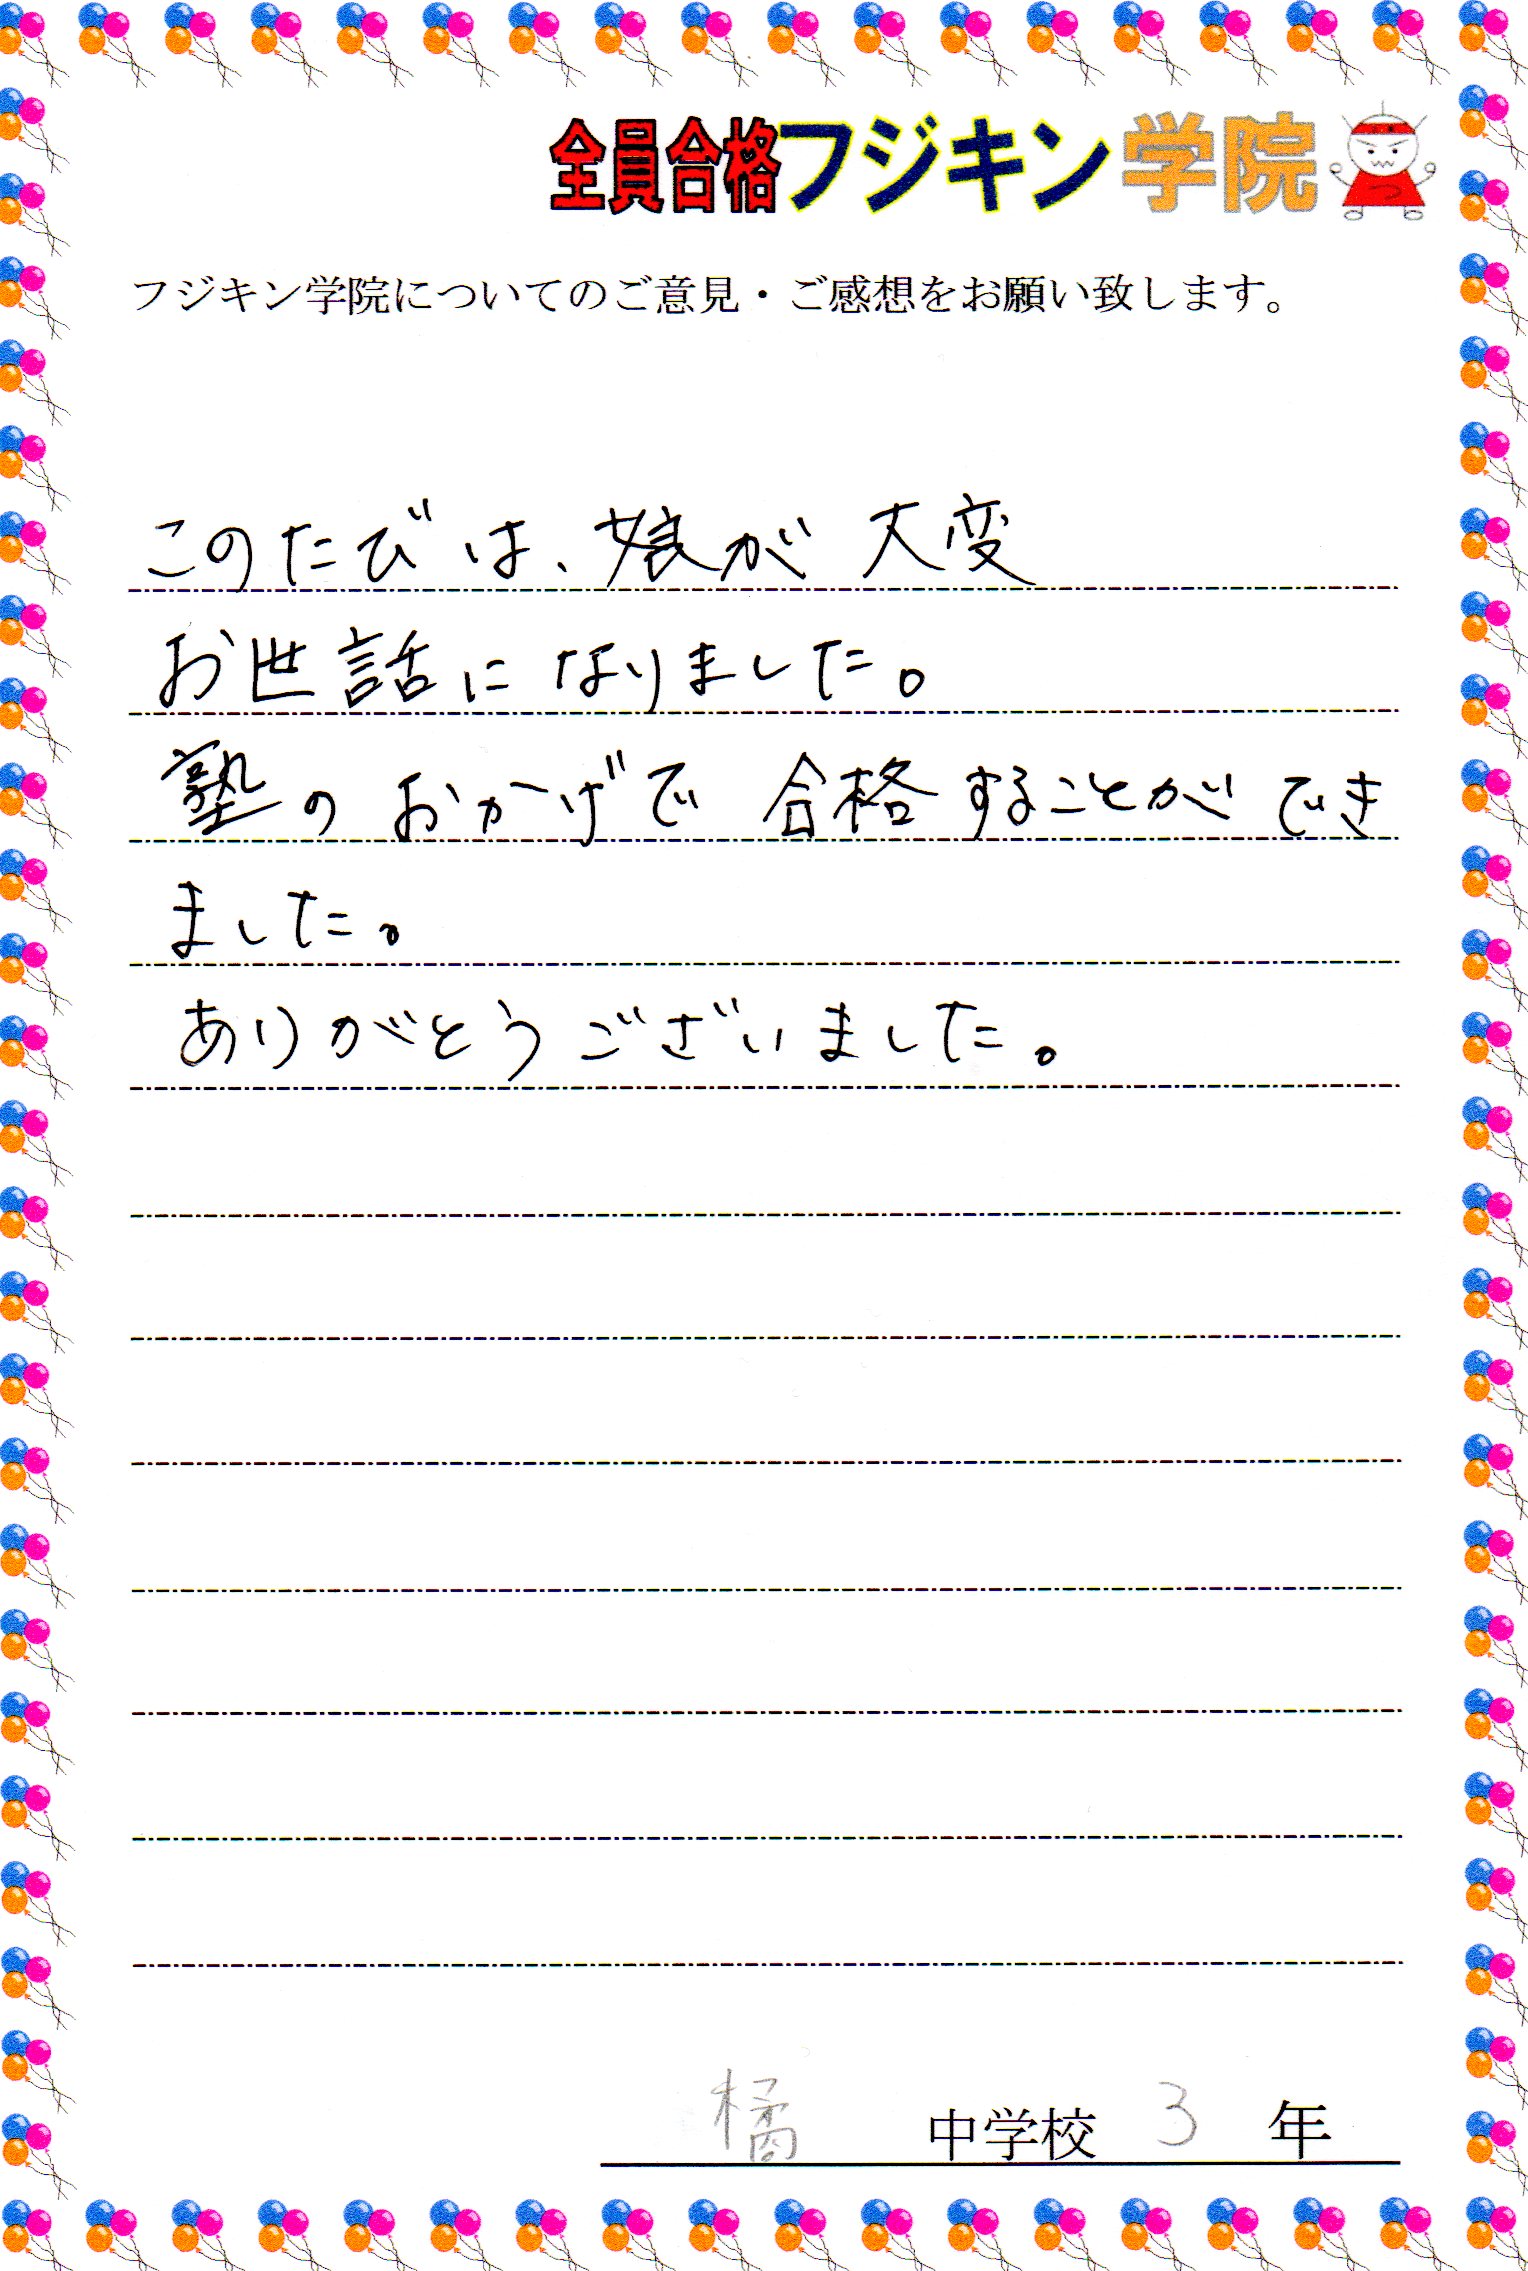 全員合格フジキン学院
フジキン学院についてのご意見・ご感想をお願い致します。
このたびは、娘が大変
お世話になりました。
塾のおかげで合格することができ
ました。
ありがとうございました。
橘 中学校 3 年